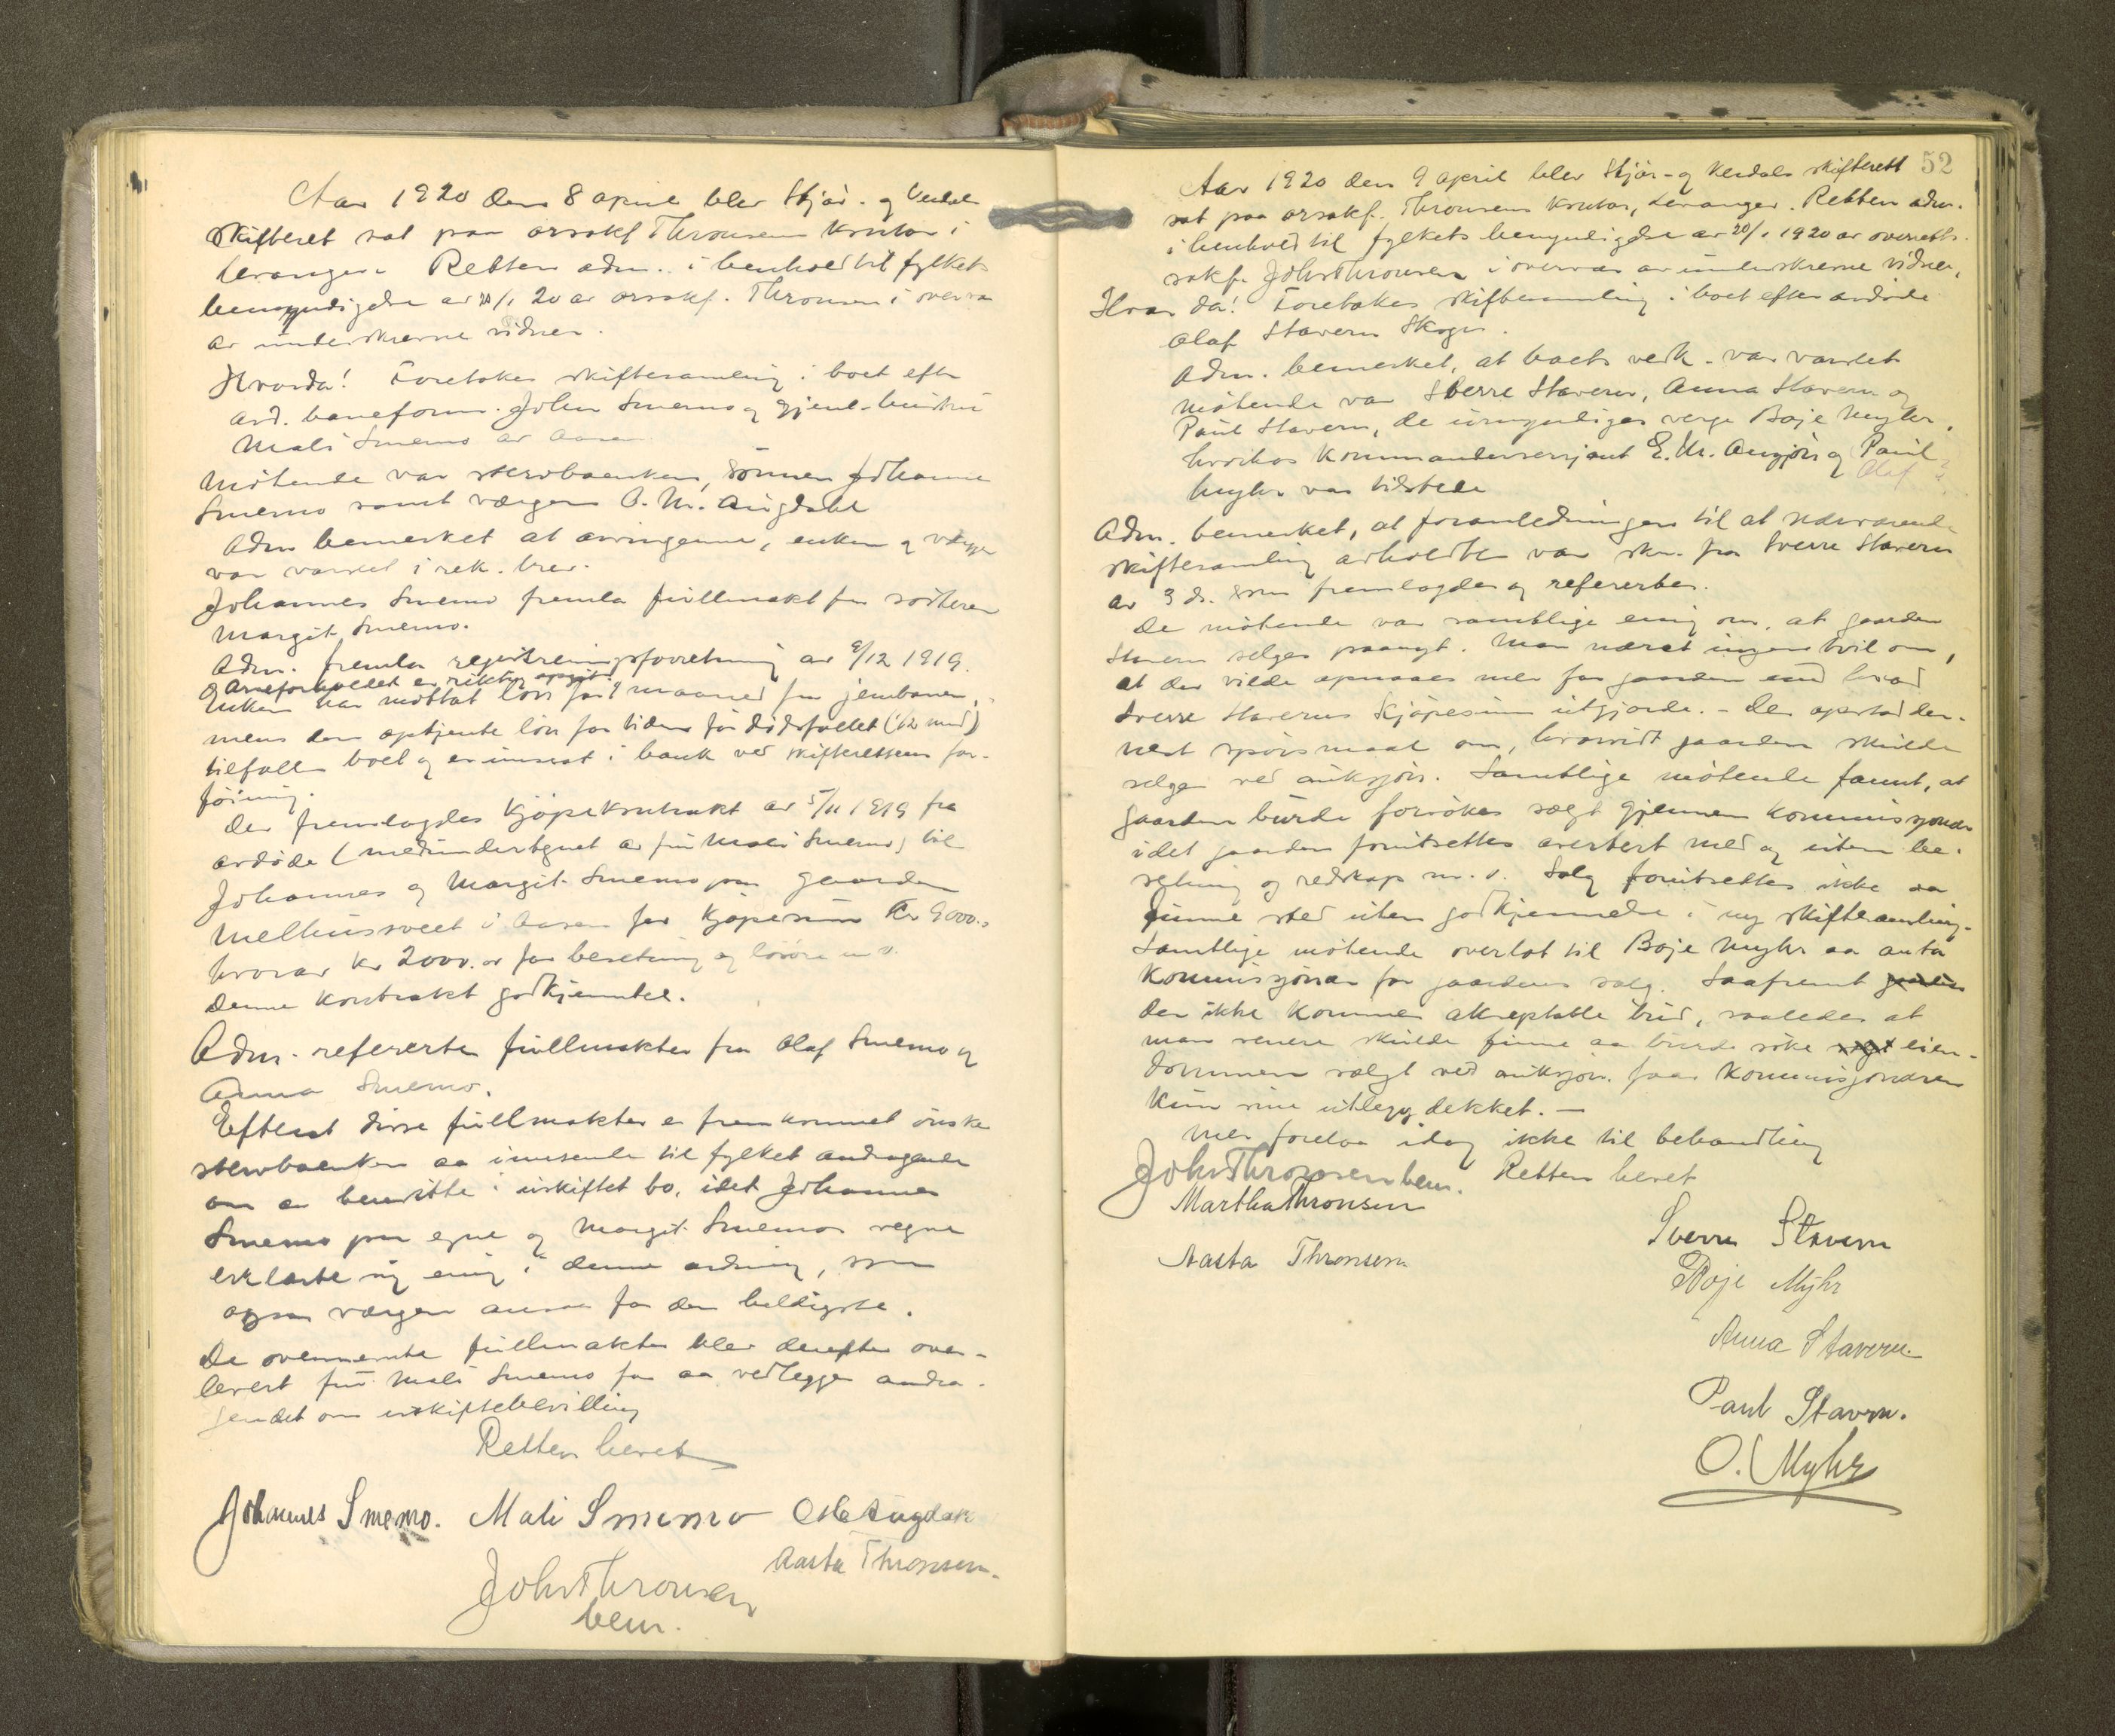 Aar 1920 den 8 april blev Stjør- og Verdals
skifteret sat paa orsakf Thronsens kontor i
Levanger. Retten adm. i henhold til fylkets
bemyndigelse av 20/1 20 av orsakf. Thronsen i overvær
av underskrevne vidner.
Hvorda! Foretokes skiftesamling i boet efter
avd. baneform. John Smemo og gjenl. hustru
Mali Smemo av Aasen
Møtende var stervboenken, sønnen Johannes
Smemo samt værgen O. M. Augdahl
Adm bemerket at arvingerne, enken og værge
var varslet i rek. brev.
Johannes Smemo fremla fullmakt fra søsteren
Margit Smemo.
Adm. fremla registreringsforretning av 9/12 1919.
og arveforholdet er riktig opgit.
Enken har mottat løn for 1 maaned fra jernbanen,
mens den optjente løn for tiden før dødsfallet (1/2 mnd)
tilfalle boet og er innsat i bank ved skifterettens for-
føining.
Der fremlagdes kjøpekontrakt av 5/11 1919 fra
avdøde (medundertegnet av fru Mali Smemo) til
Johannes og Margit Smemo paa gaarden
Melhusveet i Aasen for kjøpesum Kr 9000.-
hvorav kr 2000.- er for besetning og løsøre m v.
Denne kontrakt godkjentes.
Adm. refererte fullmakter fra Olaf Smemo og
Anna Smemo.
Efterat disse fullmakter er fremkommet ønsker
stervboenken aa innsende til fylket andragende
om aa bensitte i uskiftet bo, idet Johannes
Smemo paa egne og Margit Smemos vegne
erklærte sig enig i denne ordning, som
ogsaa værgen ansaa for den heldigste.
De ovennevnte fullmakter blev derefter over-
levert fru Mali Smemo for aa vedlegges andra-
gendet om uskiftebevilling
Retten hevet
Johannes Smemo. Mali Smemo O M Augdahl
Aasta Thronsen.
John Thronsen
bem.
52
Aar 1920 den 9 april blev Stjør- og Verdals skifterett
sat paa orsakf. Thronsens kontor, Levanger. Retten adm.
i henhold til fylkets bemyndigelse av 20/1 1920 av overretts-
sakf. John Thronsen i overvær av underskrevne vidner.
Hvor da! Foretokes skiftesamling i boet efter avdøde
Olaf Stavern Skogn.
Adm. bemerket, at boets vedk. var varslet
Møtende var Sverre Stavern, Anna Stavern og
Paul Stavern, de umyndiges verge Boje Myhr,
hvorhos kommandersersjant E. M. og Paul
Olaf ?
Myhr var tilstede
Adm. bemerket, at foranledningen til at nærværende
skiftesamling avholdtes var skr. fra Sverre Stavern
av 3 ds. som fremlagdes og refereertes.
De møtende var samtlige enig om, at gaarden
Stavern selges paanyt. Man næret ingen tvil om,
at der vilde opnaaes mer for gaarden end hvad
Sverre Staverns kjøpesum utgjorde. - Der opstod der-
næst spørsmaal om, hvorvidt gaarden skulde
selges ved auksjon. Samtlige møtende fannt, at
gaarden burde forsøkes sælgt gjennem kommisjonær
idet gaarden forutsettes avertert med og uten be-
setning og redskap m. v. Salg forutsettes ikke aa
finne sted uten godkjennelse i ny skiftesamling.
Samtlige møtende overlot til Boje Myhr aa anta
kommisjonær for gaardens salg. Saafremt gaarden
der ikke kommer akseptable bud, saaledes at
man senere skulde finne aa burde søke solgt eien-
dommen sælgt ved auksjon. faar kommisjonæren
kun sine utlegg dekket. —
Mer forelaa idag ikke til behandling
John Thronsen bem. Retten hevet
Martha Thronsen
Aasta Thronsen
Sverre Stavern
Boje Myhr
Anna Stavern.
Paul Stavern.
O. Myhr